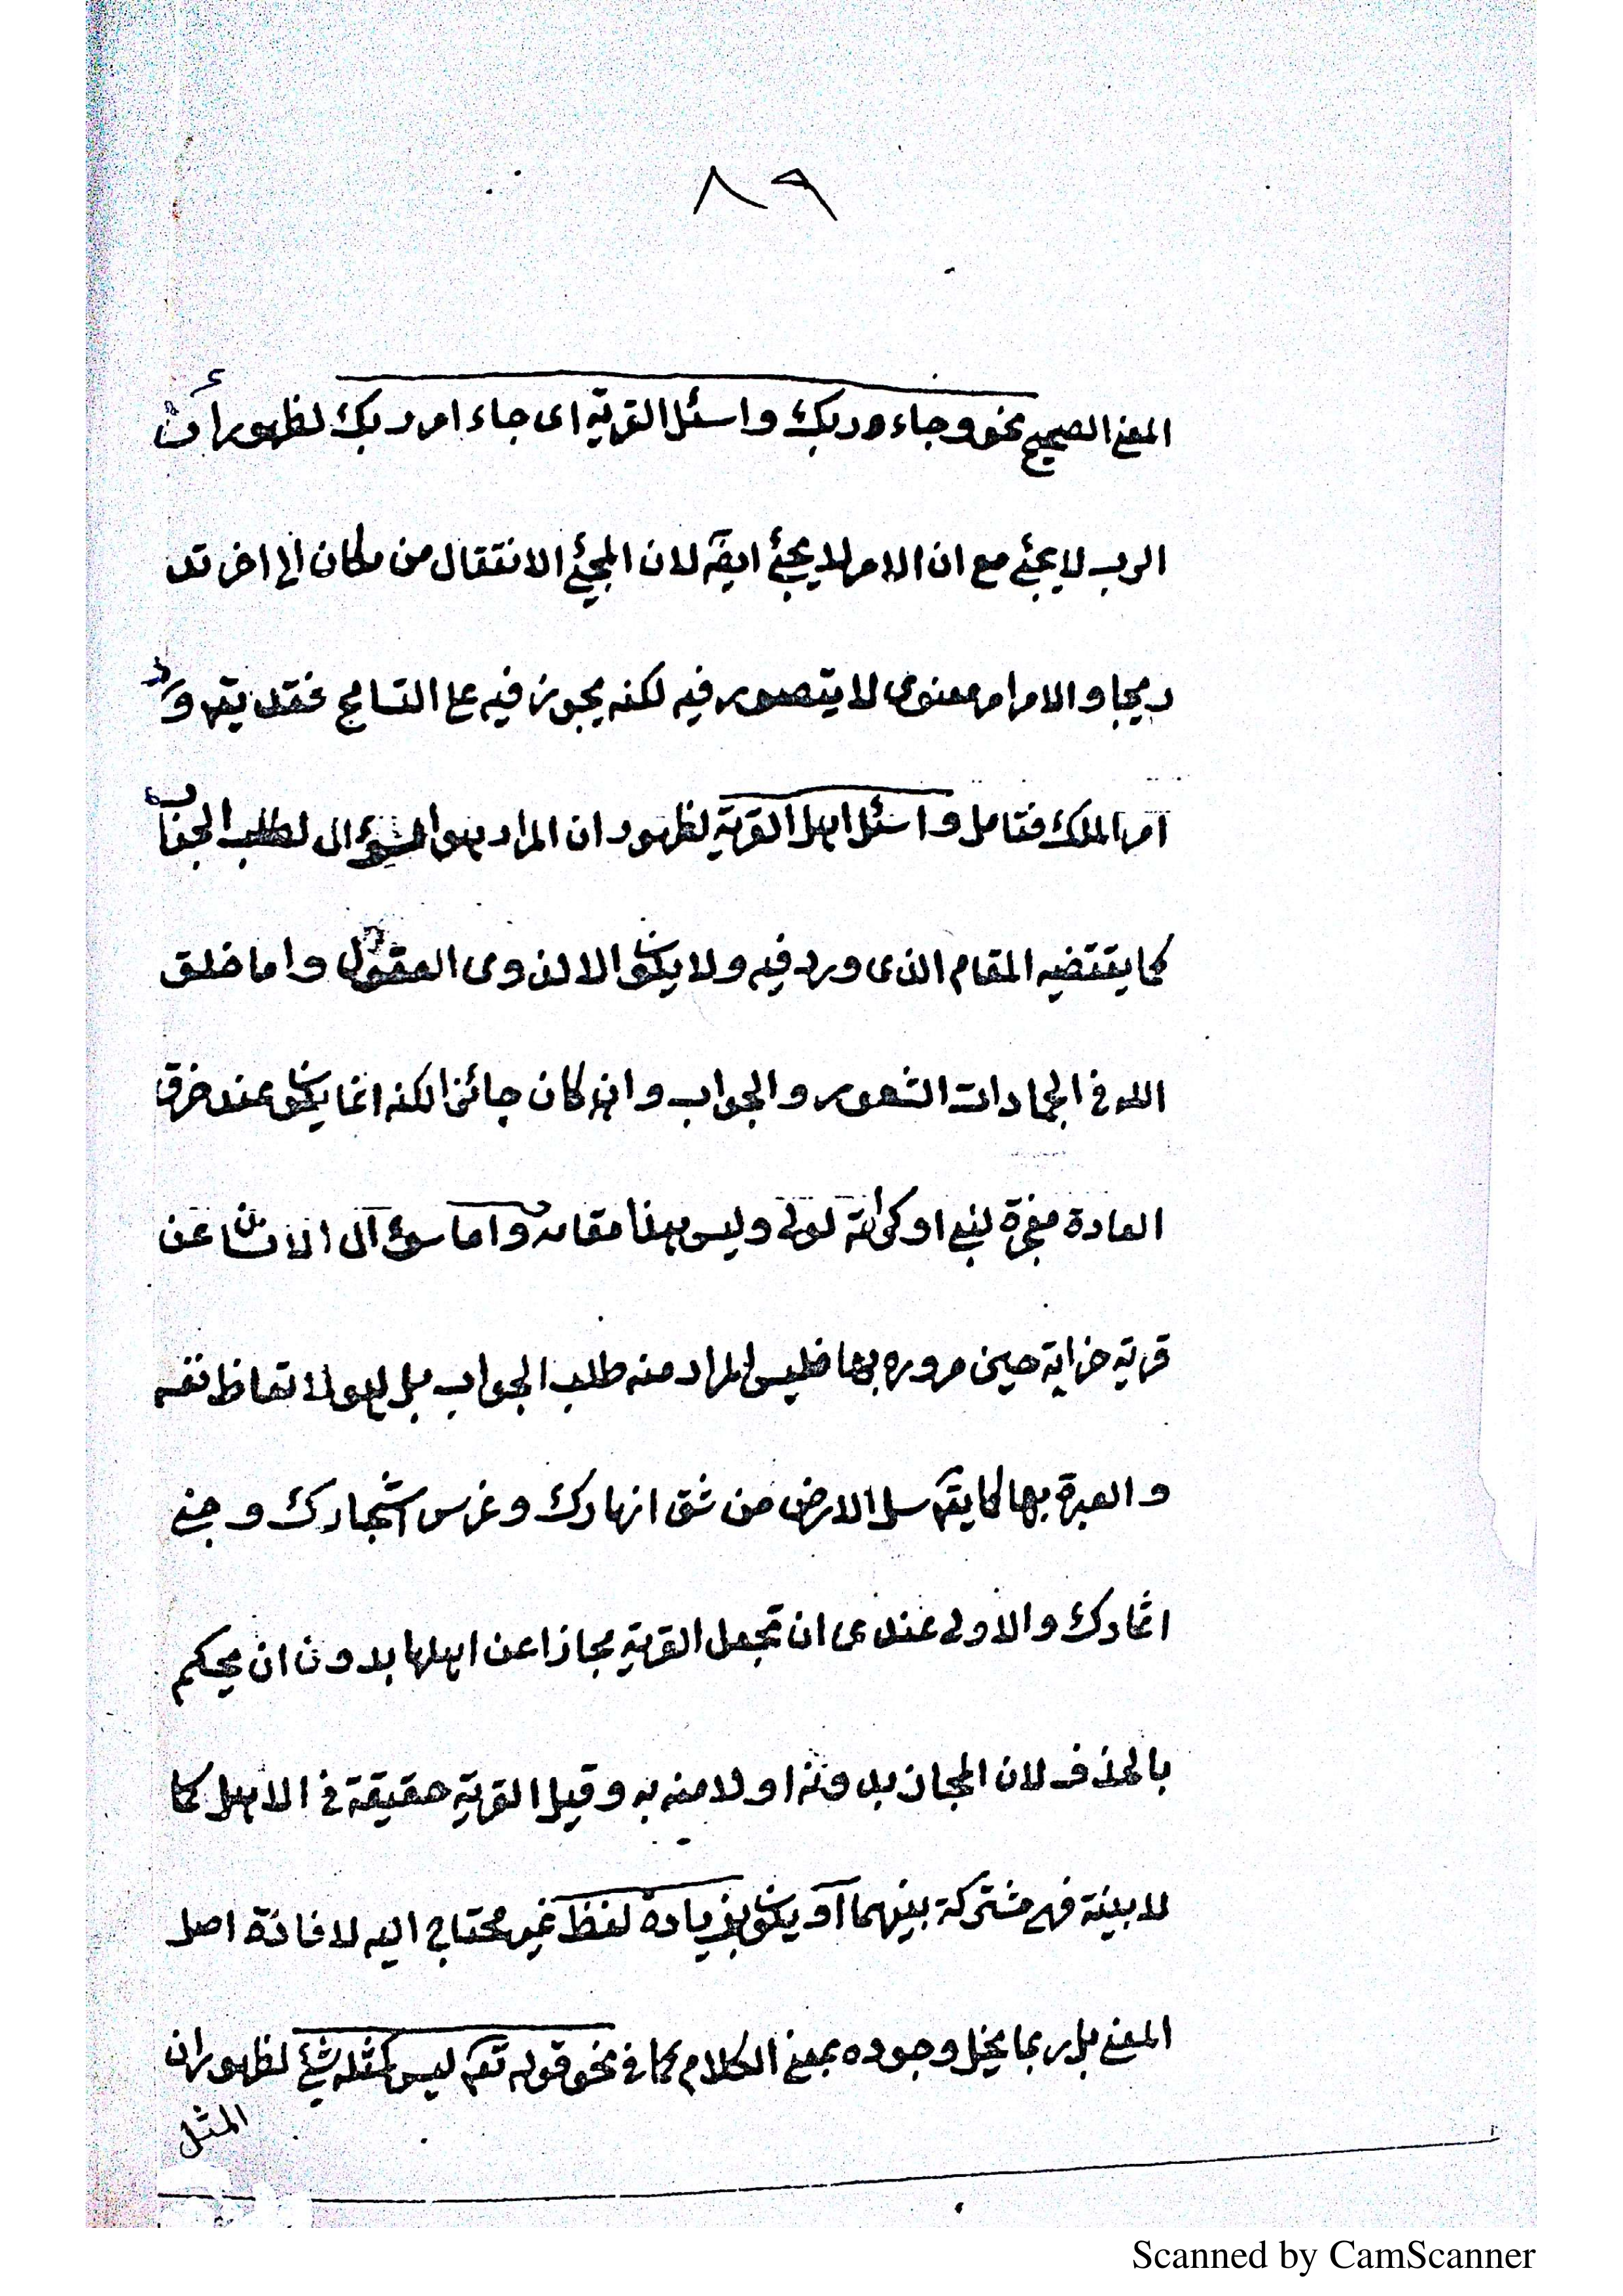 ٨٩
المعنى الصحيح نحو وجاء ربك واسئل القرية اى جاء امر ربك لظهور أن
الرب لا يجئ مع ان الامر لا يجئ ايضا لان المجئ الانتقال من مكان الى اخر تد
ريجا والامر امر معنوى لا يتصور فيه لكنه يجوز فيه على التسامح فقد يقم ورد
امر الملك فتامل واسئل اهل القرية لظهور ان المراد هو السؤال لطلب الجواب
كما يقتضيه المقام الذى ورد فيه ولا يكون الا لذوى العقول واما خلق
الله فى الجمادات الشعور والجواب وان كان جائزا لكنه انما يكون عند خرق
العادة معجزة لنبى او كرامة لولى وليس هذا مقامه واما سؤال الانسان عن
قرية خرابة حين مروره بها فليس المراد منه طلب الجواب بل هو لاتعاظ نفسه
والعبرة بها كما يقم سل الارض من شق انهارك وغرس اشجارك وجنى
اثمارك والاولى عندى ان تجعل القرية مجازا عن اهلها بدون ان يحكم
بالحذف لان المجاز بدونه اولا منه به وقيل القرية حقيقة فى الاهل كما
لابينة فهى مشتركة بينهما او يكون بزيادة لفظ غير محتاج اليه لافادة اصل
المعنى بل ربما يخل وجوده بمعنى الكلام كما فى نحو قوله تعم ليس كمثله شئ لظهور ان
المثل
Scanned by CamScanner